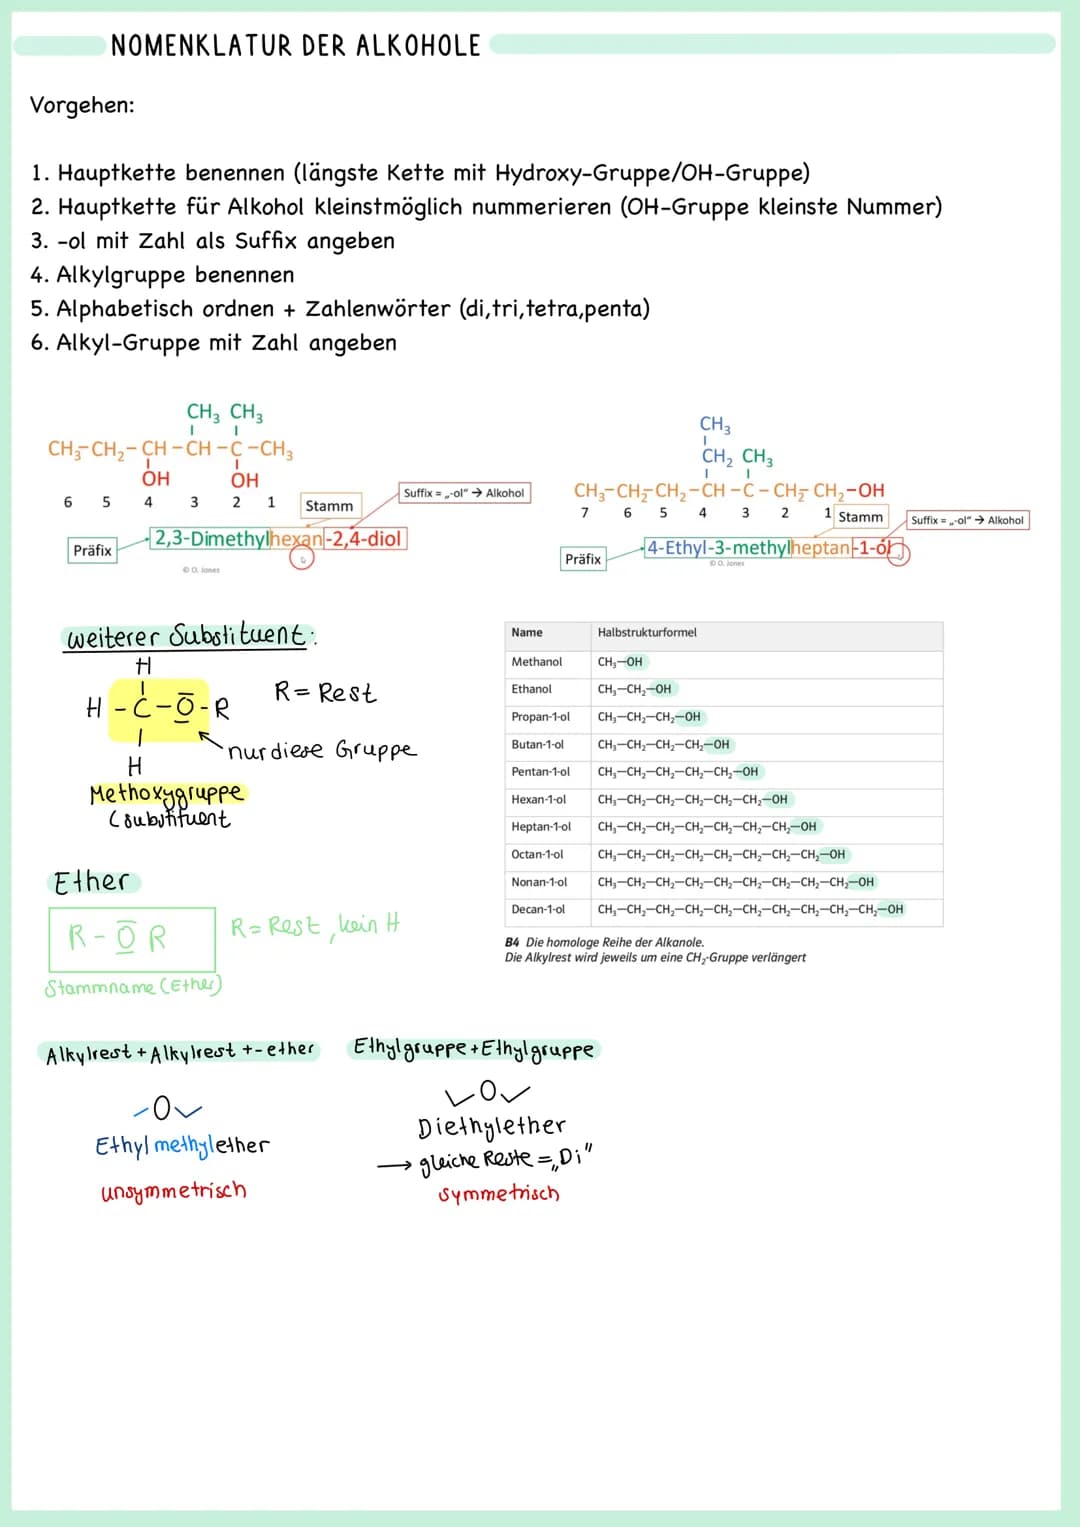 NOMENKLATUR DER ALKOHOLE
Vorgehen:
1. Hauptkette benennen (längste Kette mit Hydroxy-Gruppe/OH-Gruppe)
2. Hauptkette für Alkohol kleinstmöglich nummerieren (OH-Gruppe kleinste Nummer)
3. -ol mit Zahl als Suffix angeben
4. Alkylgruppe benennen
5. Alphabetisch ordnen + Zahlenwörter (di,tri,tetra,penta)
6. Alkyl-Gruppe mit Zahl angeben
CH₃ CH₃
CH₃-CH₂-CH-CH-C-CH₃
OH OH
6 5 4 3 2 1
Stamm
Suffix = „-ol" → Alkohol
Präfix
2,3-Dimethylhexan-2,4-diol
© O. Jones
CH₃
CH₂ CH₃
CH₃-CH₂-CH₂-CH-C-CH₂-CH₂-OH
7 6 5 4 3 2 1
Stamm
Suffix = „-ol" → Alkohol
Präfix
4-Ethyl-3-methylheptan-1-ol
© O. Jones
weiterer Substituent:
H
H-C-O-R
R = Rest
H
nur diese Gruppe
Methoxygruppe
(substituent
Name Halbstrukturformel
Methanol CH₃—OH
Ethanol CH₃—CH₂—OH
Propan-1-ol CH₃—CH₂—CH₂—OH
Butan-1-ol CH₃—CH₂—CH₂—CH₂—OH
Pentan-1-ol CH₃—CH₂—CH₂—CH₂—CH₂—OH
Hexan-1-ol CH₃—CH₂—CH₂—CH₂—CH₂—CH₂—OH
Heptan-1-ol CH₃—CH₂—CH₂—CH₂—CH₂—CH₂—CH₂—OH
Octan-1-ol CH₃—CH₂—CH₂—CH₂—CH₂—CH₂—CH₂—CH₂—OH
Nonan-1-ol CH₃—CH₂—CH₂—CH₂—CH₂—CH₂—CH₂—CH₂—CH₂—OH
Decan-1-ol CH₃—CH₂—CH₂—CH₂—CH₂—CH₂—CH₂—CH₂—CH₂—CH₂—OH
B4 Die homologe Reihe der Alkanole.
Die Alkylrest wird jeweils um eine CH₂-Gruppe verlängert
Ether
R-O R
R = Rest, kein H
Stammname (Ether)
Alkylrest + Alkylrest + -ether
Ethylgruppe + Ethylgruppe
O
Ethylmethylether
unsymmetrisch
O
Diethylether
→ gleiche Reste = „Di"
symmetrisch